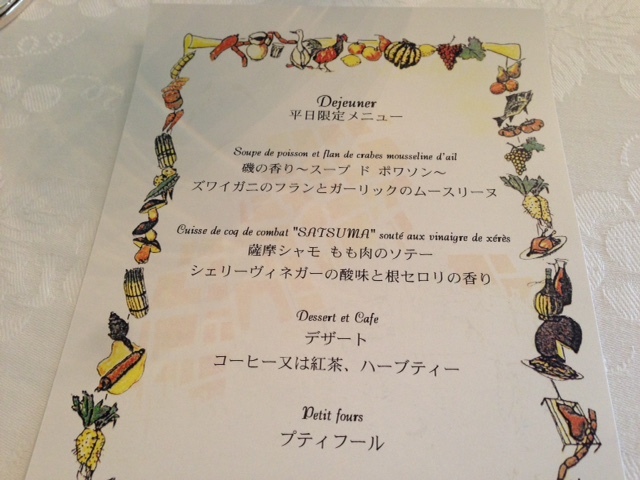 Dejeuner
平日限定メニュー
Soupe de poisson et flan de crabes mousseline d'ail
磯の香り～スープ ド ポワソン～
ズワイガニのフランとガーリックのムースリーヌ
Cuisse de coq de combat "SATSUMA" souté aux vinaigre de xérès
薩摩シャモ もも肉のソテー
シェリーヴィネガーの酸味と根セロリの香り
Dessert et Cafe
デザート
コーヒー又は紅茶、ハーブティー
Petit fours
プティフール